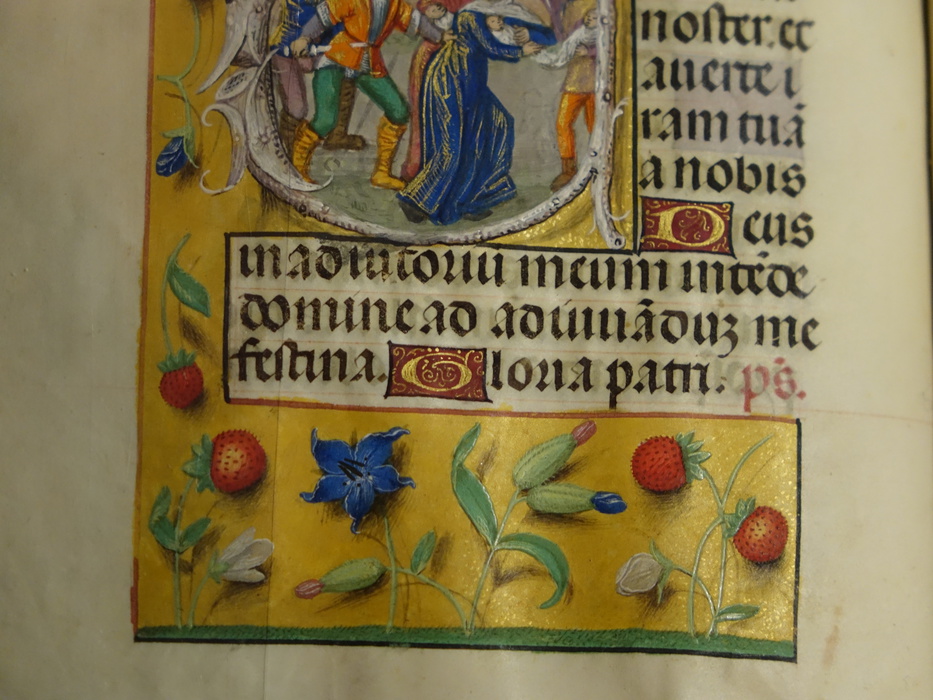 noster. et
auerte i
ram tuā
a nobis
Deus
in adiutoriū meum intēde
domine ad adiuuāduʒ me
festina. Gloria patri. ps̄.